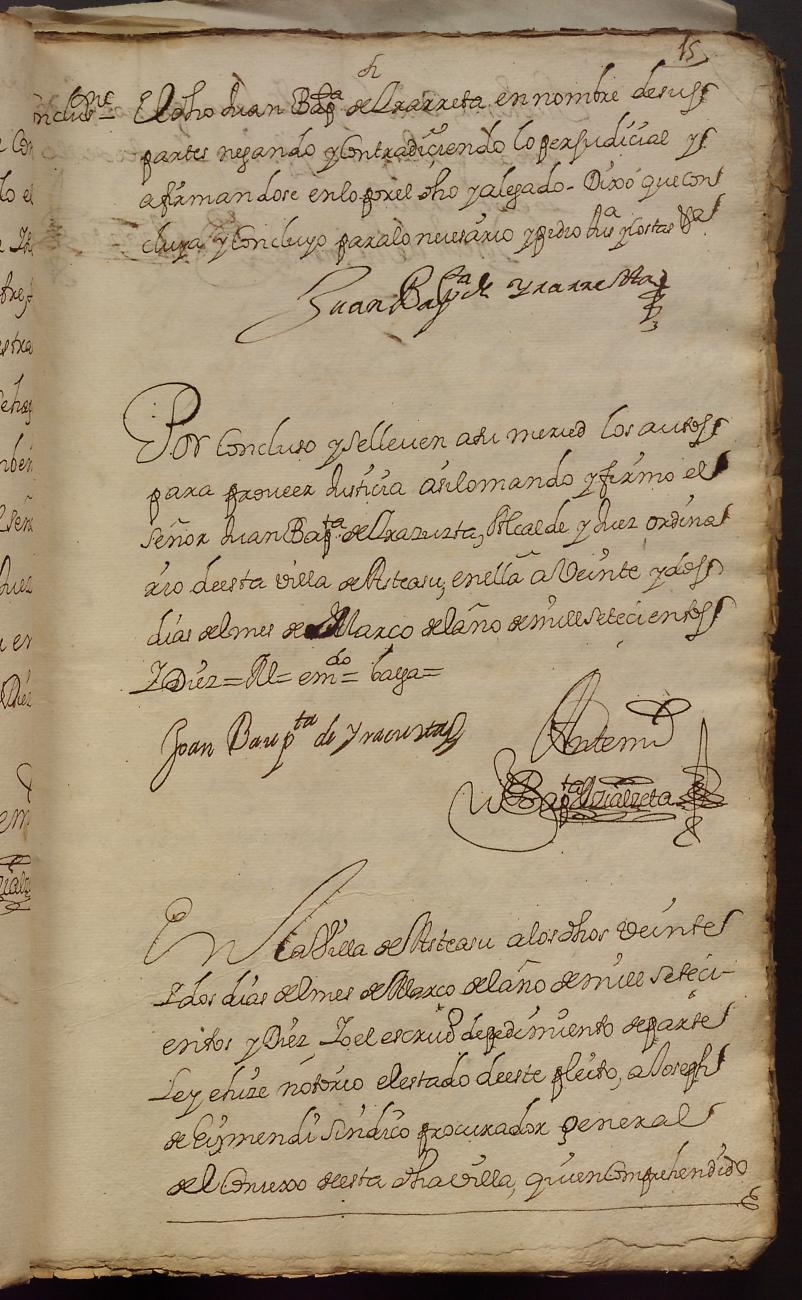 15
Conclus.ne El dho Juan Bapta de Yrarreta en nombre de sus
partes negando y Contradiçiendo lo perjudicial y
afirmandose en lo por el dho y alegado. Dixo que con
cluya y Concluyo para lo necesario y pidio Jusa y costas Va
Juan Bapta de Yrarretta
Por Concluso y se lleuen a su merced los autos
para proueer Justicia asi lo mando y firmo el
señor Juan Bapta de Yrazuzta, Alcalde y Juez ordina
rio de esta villa de Asteasu, en ella a Veinte y dos
dias del mes de Março del año de mill setecientos
Y Diez = Rl = emdo = baya =
Joan Baupta de Yracusta
Antemi
Bapta Yzialzeta
En la Villa de Asteasu a los dhos veinte
Y dos dias del mes de Março del año de mill seteci-
entos y Diez Yo el escriuo de pedimiento de parte
Ley e hize notorio el estado de este pleito, a Joseph
de Eizmendi sindico procurador general
del Conçexo de esta dha villa, quien Comprehendido